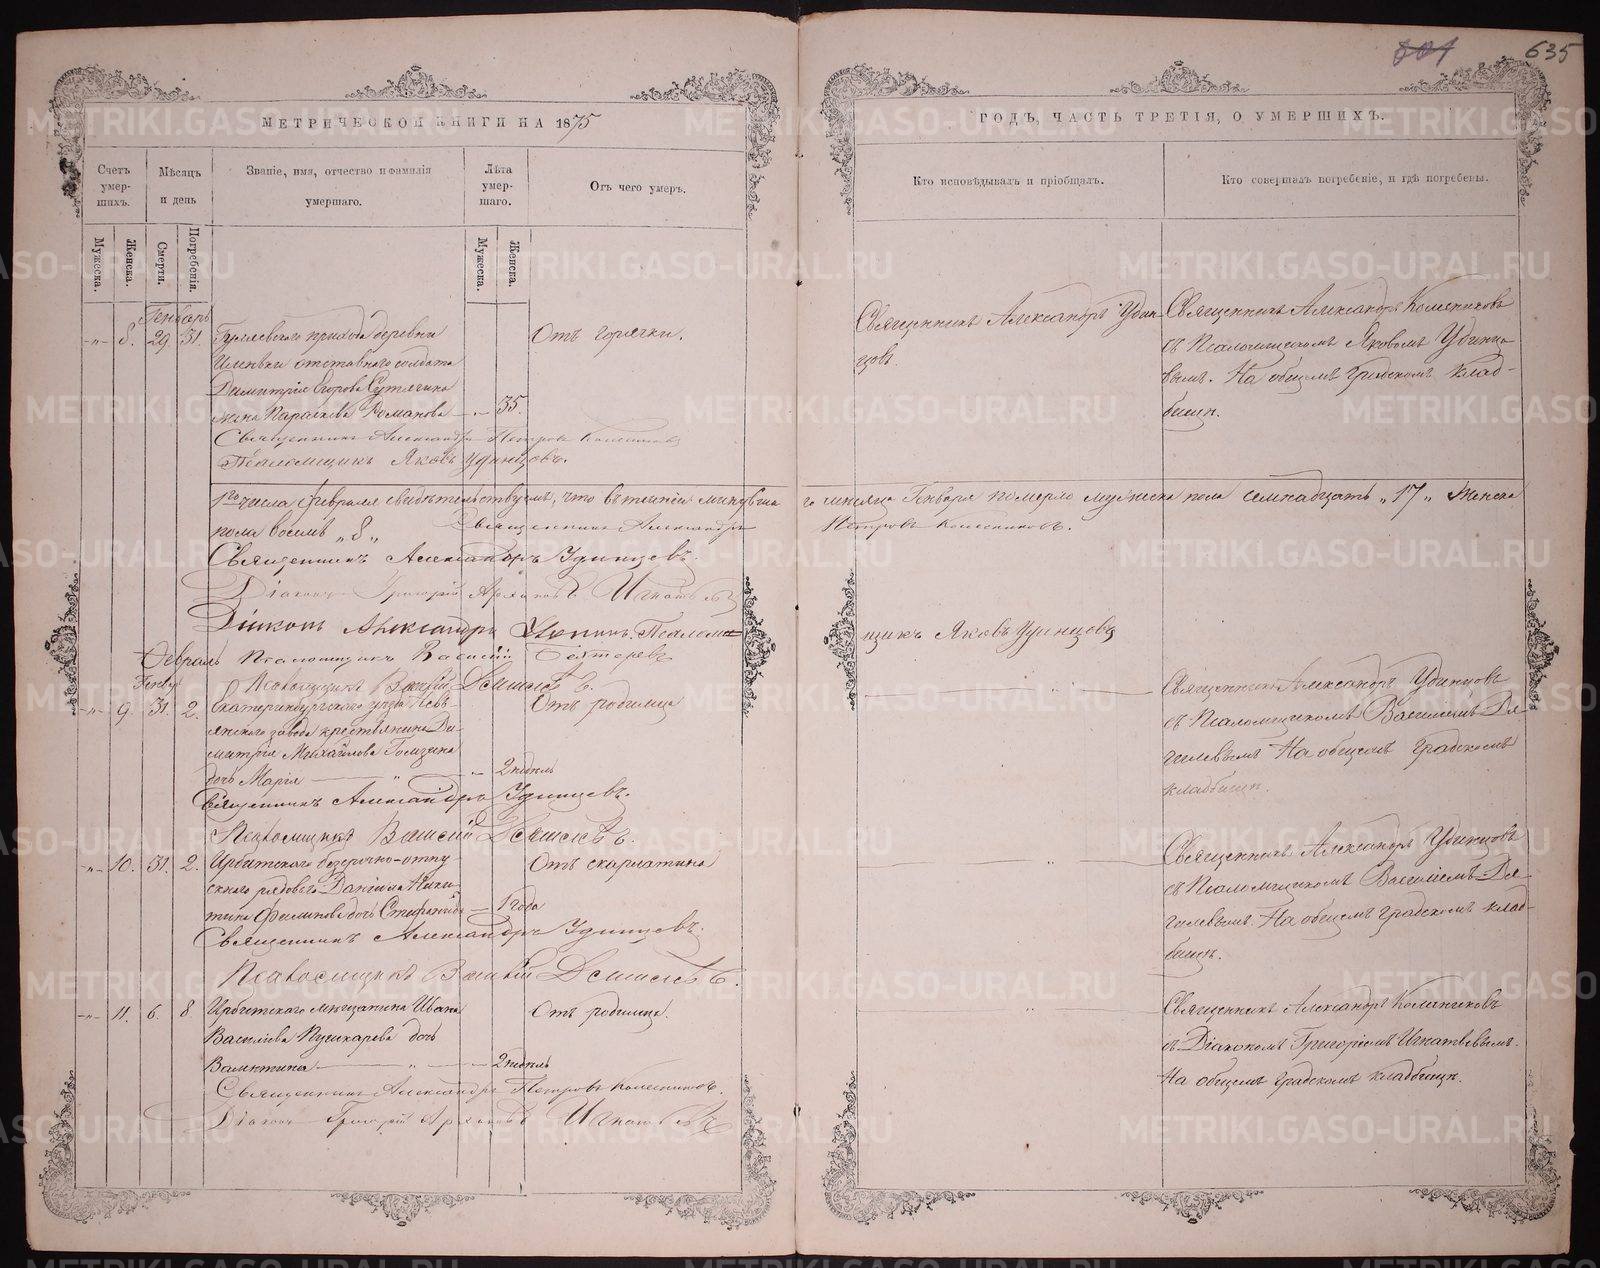 601 635
МЕТРИЧЕСКОЙ КНИГИ НА 1875
ГОДЪ, ЧАСТЬ ТРЕТІЯ, О УМЕРШИХЪ.
Счетъ умер-шихъ.
Мѣсяцъ и день
Званіе, имя, отчество и фамилія умершаго.
Лѣта умер-шаго.
Отъ чего умеръ.
Кто исповѣдывалъ и пріобщалъ.
Кто совершалъ погребеніе, и гдѣ погребены.
Мужеска.
Женска.
Смерти.
Погребенія.
Мужеска.
Женска.
Генварь
-„- 8. 29 31.
прихода деревни
отставнаго солдата
Димитрія Егорова Сутягина
жена Параскева Романова -„- 35.
Отъ горячки.
Священникъ Александръ Удин-
цовъ.
Священникъ Александръ Колесниковъ
съ Псаломщикомъ Яковомъ Удинцо-
вымъ. На общемъ градскомъ клад-
бищѣ.
Священникъ Александръ Петровъ Колесниковъ
Псаломщикъ Яковъ Удинцовъ.
1го числа февраля свидѣтельствуемъ, что въ теченіи минувша
го мѣсяца Генваря померло мужеска пола семнадцать „17„ Женска
пола восемь „8„ Священникъ Александръ
Петровъ Колесниковъ.
Священникъ Александръ Удинцевъ.
Діаконъ Григорій Игнатьевъ
Діаконъ Александръ Псаломщикъ Яковъ Удинцовъ
Февраль
Псаломщикъ Василій
Псаломщикъ Василій
Генвр
-„- 9. 31. 2.
Екатеринбургскаго уѣзда Невь-
янскаго завода крестьянина Ди-
митрія Михайлова
дочь Марія -„- 2 недѣль
Отъ родимца
Священникъ Александръ Удинцовъ
съ Псаломщикомъ Василіемъ Дя-
гилевымъ На общемъ градскомъ
кладбищѣ.
Священникъ Александръ Удинцевъ.
Псаломщикъ Василій
-„- 10. 31. 2.
Ирбитскаго безсрочно-отпу
скнаго рядоваго Даніила Ники-
тина дочь Стефанида - 1 года
Отъ скарлатина
Священникъ Александръ Удинцовъ
съ Псаломщикомъ Василіемъ Дя-
гилевымъ. На общемъ градскомъ клад-
бищѣ.
Священникъ Александръ Удинцевъ.
Псаломщикъ Василій
-„- 11. 6. 8
Ирбитскаго мѣщанина Ивана
Василіева Пушкарева дочь
Валентина -„- 2 недѣль
Отъ родимца.
Священникъ Александръ Колесниковъ
съ Діакономъ Григоріемъ Игнатьевымъ.
На общемъ градскомъ кладбищѣ.
Священникъ Александръ Петровъ Колесниковъ.
Діаконъ Григорій Игнатьевъ
METRIKI.GASO-URAL.RU